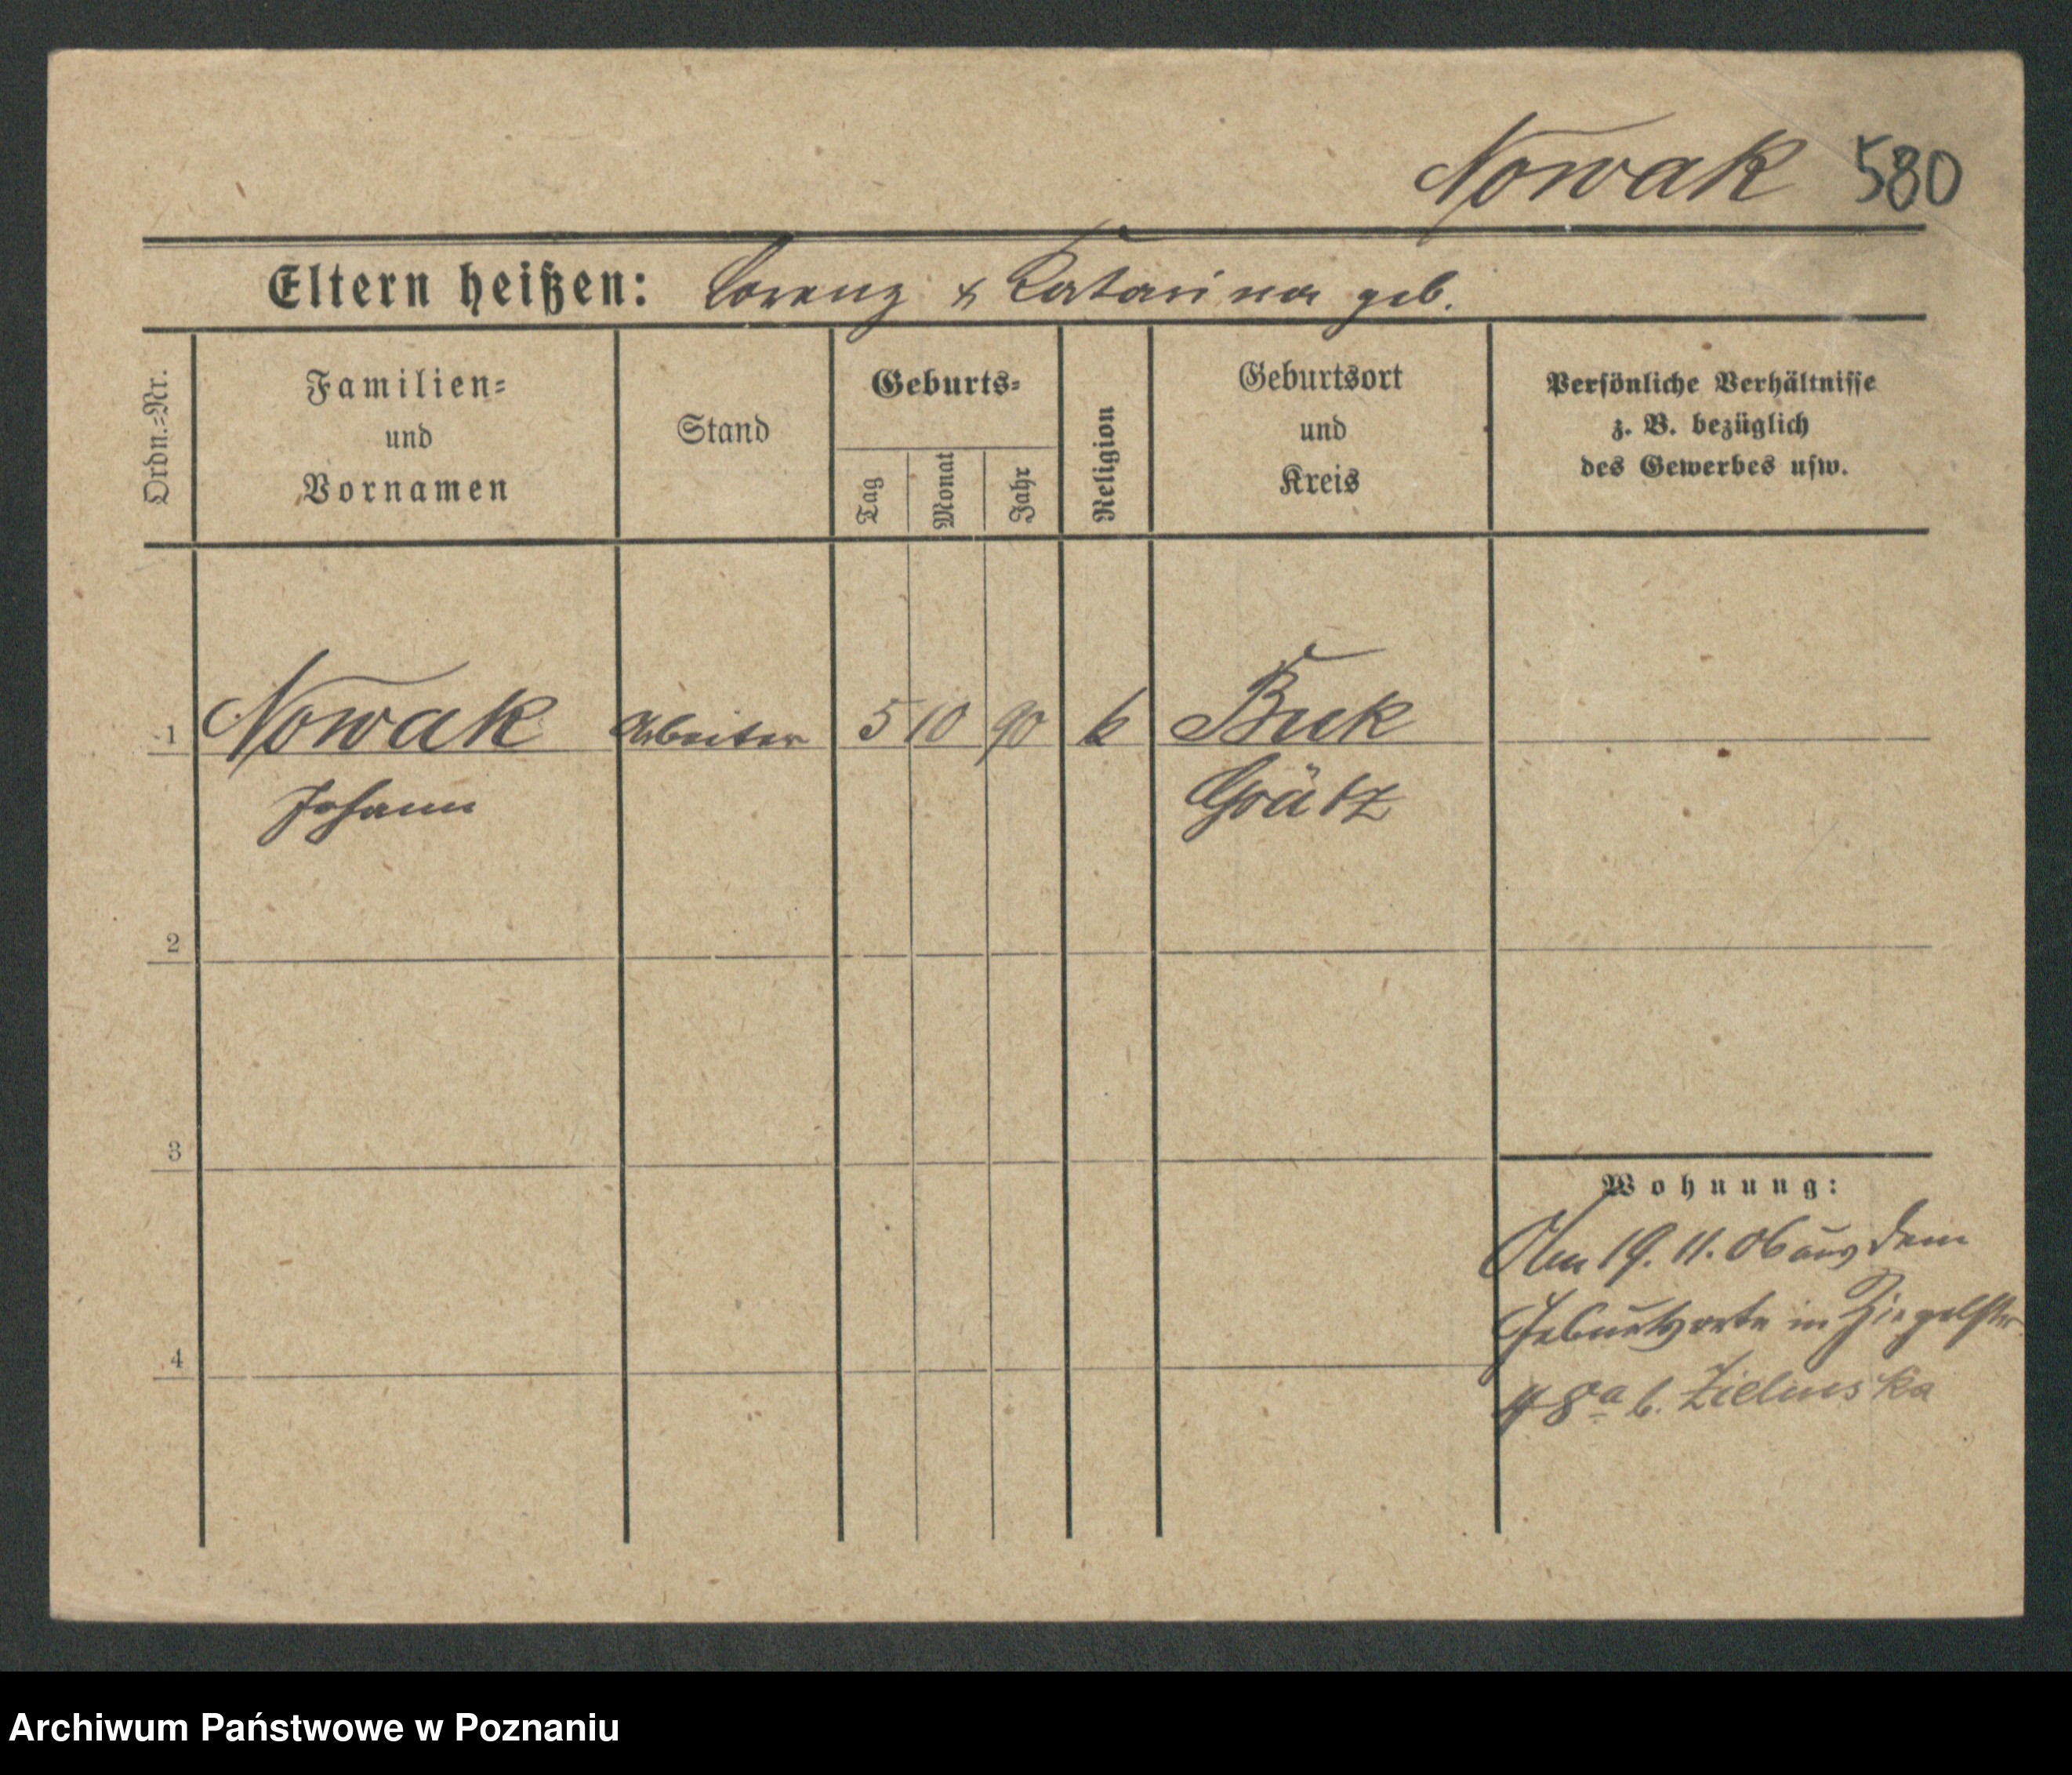 Nowak 580
Eltern heißen: Lorenz & Katarina geb.
Ordn.=Nr.
Familien=
und
Vornamen
Stand
Geburts=
Tag
Monat
Jahr
Religion
Geburtsort
und
Kreis
Persönliche Verhältnisse
z. B. bezüglich
des Gewerbes usw.
1 Nowak Arbeiter 5 10 90 k Buk
Johann Grätz
2
3
Wohnung:
Am 19. 11. 06 aus dem
Geburtsorte in Ziegelstr
4
8a b. Zielinska
Archiwum Państwowe w Poznaniu